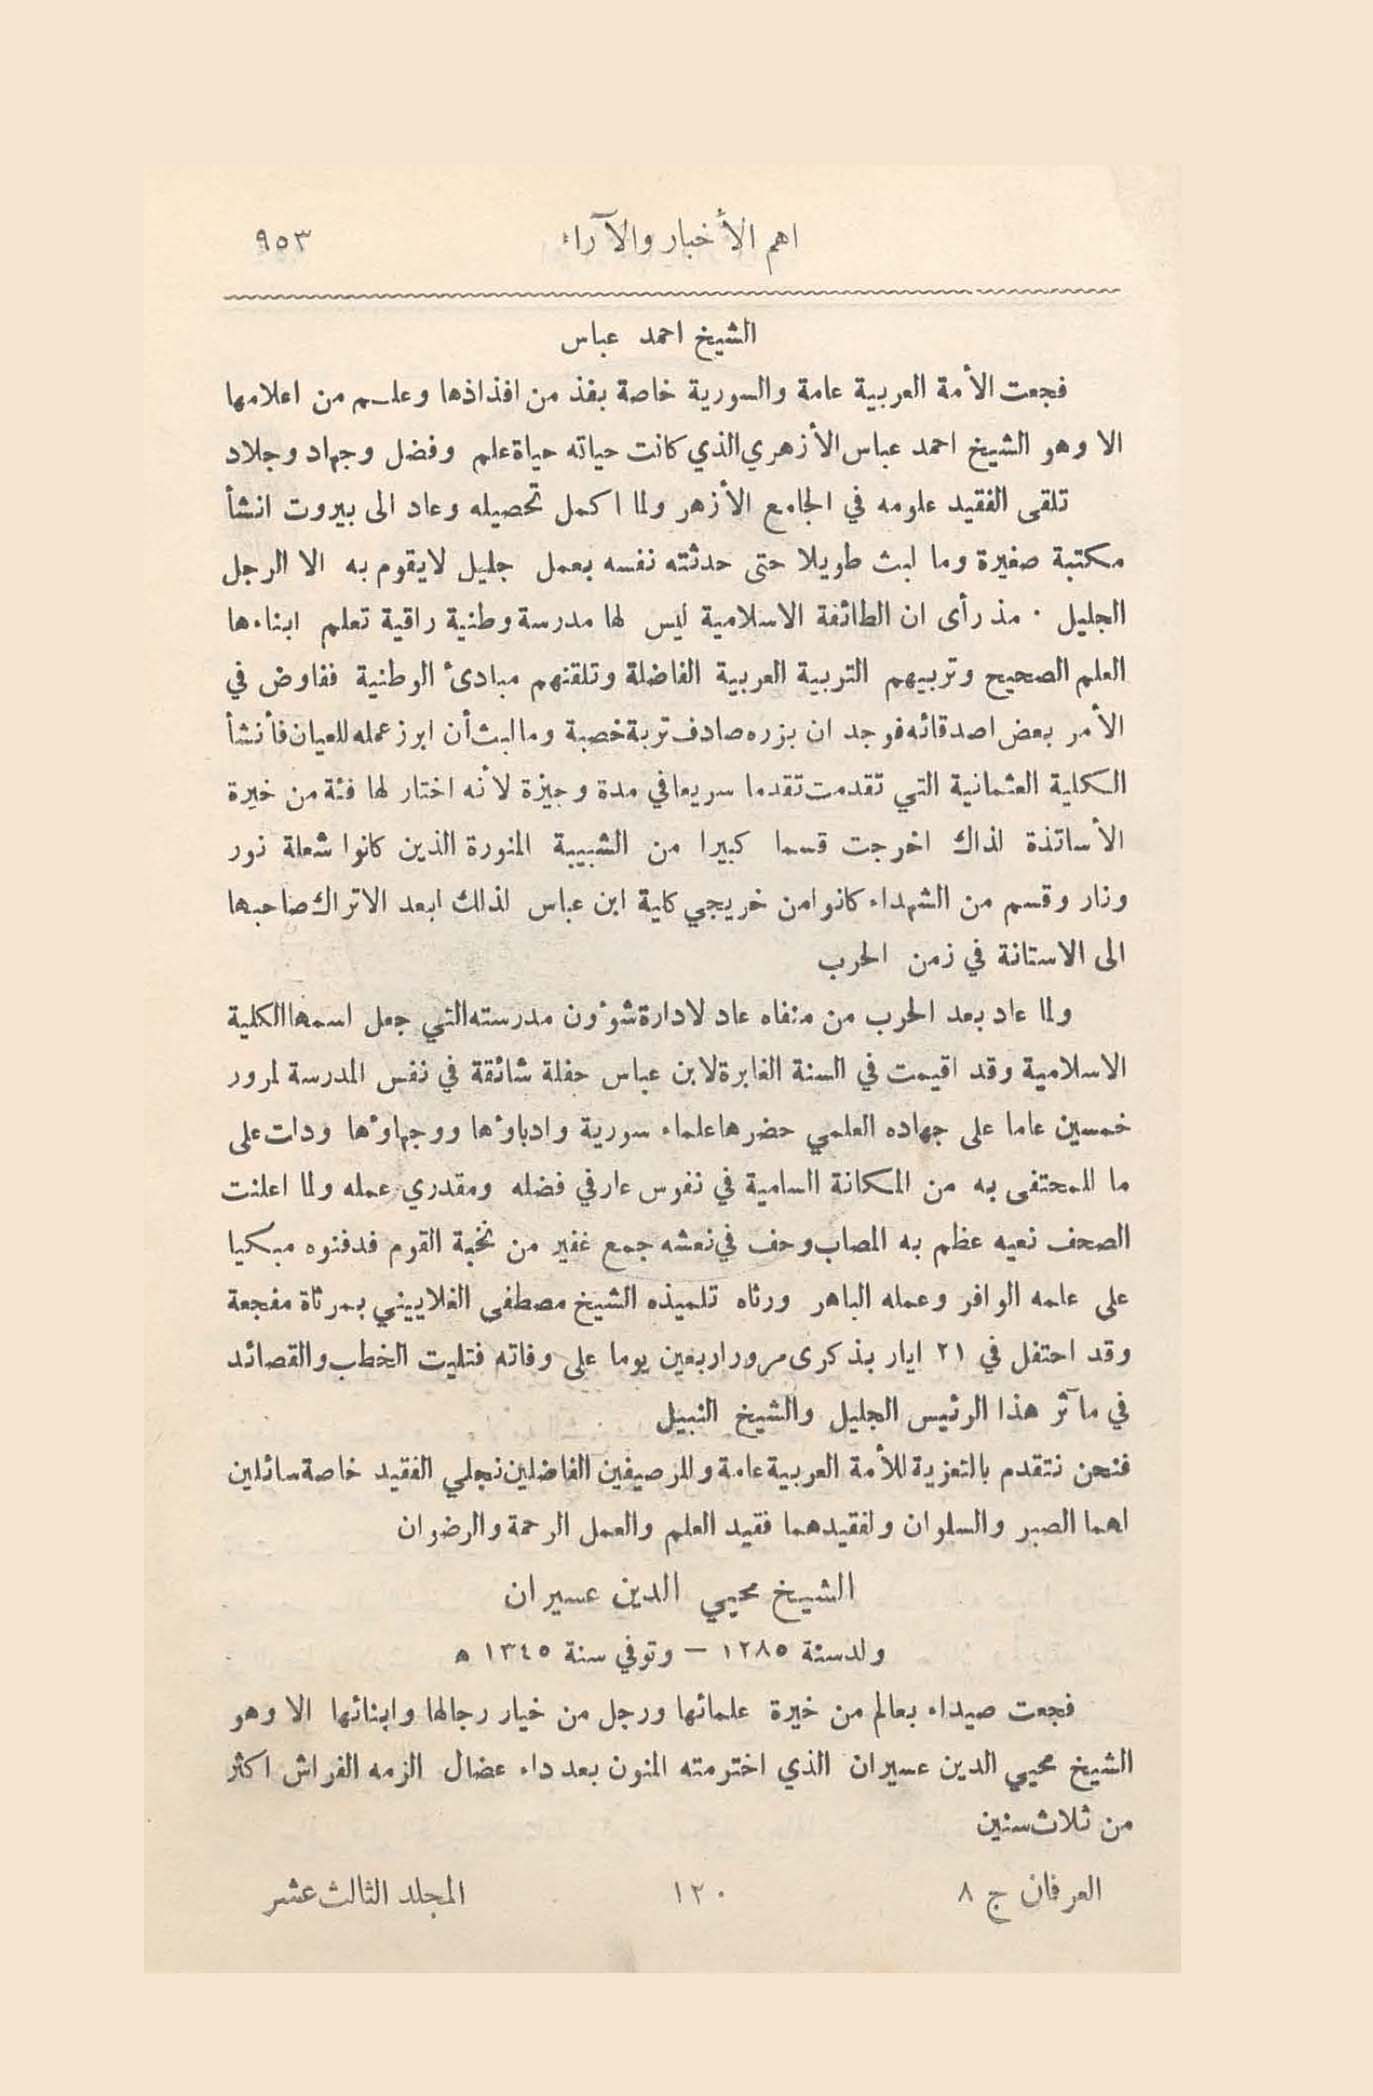 اهم الأخبار والآراء ٩٥٣
الشيخ احمد عباس
فجعت الأمة العربية عامة والسورية خاصة بفذ من افذاذها وعلم من اعلامها
الا وهو الشيخ احمد عباس الأزهري الذي كانت حياته حياة علم وفضل وجهاد وجلاد
تلقى الفقيد علومه في الجامع الأزهر ولما اكمل تحصيله وعاد الى بيروت انشأ
مكتبة صغيرة وما لبث طويلا حتى حدثته نفسه بعمل جليل لا يقوم به الا الرجل
الجليل . مذ رأى ان الطائفة الاسلامية ليس لها مدرسة وطنية راقية تعلم ابناءها
العلم الصحيح وتربيهم التربية العربية الفاضلة وتلقنهم مبادئ الوطنية ففاوض في
الأمر بعض اصدقائه فوجد ان بزره صادف تربة خصبة وما لبث أن ابرز عمله للعيان فأنشأ
الكلية العثمانية التي تقدمت تقدما سريعا في مدة وجيزة لأنه اختار لها فئة من خيرة
الأساتذة لذاك اخرجت قسما كبيرا من الشبيبة المنورة الذين كانوا شعلة نور
ونار وقسم من الشهداء كانوا من خريجي كلية ابن عباس لذلك ابعد الاتراك صاحبها
الى الاستانة في زمن الحرب
ولما عاد بعد الحرب من منفاه عاد لادارة شؤون مدرسته التي جعل اسمها الكلية
الاسلامية وقد اقيمت في السنة الغابرة لابن عباس حفلة شائقة في نفس المدرسة لمرور
خمسين عاما على جهاده العلمي حضرها علماء سورية وادباؤها ووجهاؤها ودات على
ما للمحتفى به من المكانة السامية في نفوس عارفي فضله ومقدري عمله ولما اعلنت
الصحف نعيه عظم به المصاب وحف في نعشه جمع غفير من نخبة القوم فدفنوه مبكيا
على علمه الوافر وعمله الباهر ورثاه تلميذه الشيخ مصطفى الغلاييني بمرثاة مفجعة
وقد احتفل في ٢١ ايار بذكرى مرور اربعين يوما على وفاته فتليت الخطب والقصائد
في مآثر هذا الرئيس الجليل والشيخ النبيل
فنحن نتقدم بالتعزية للأمة العربية عامة وللرصيفين الفاضلين نجلي الفقيد خاصة سائلين
لهما الصبر والسلوان ولفقيدهما فقيد العلم والعمل الرحمة والرضوان
الشيخ محيي الدين عسيران
ولد سنة ١٢٨٥ – وتوفي سنة ١٣٤٥ ه
فجعت صيداء بعالم من خيرة علمائها ورجل من خيار رجالها وابنائها الا وهو
الشيخ محيي الدين عسيران الذي اخترمته المنون بعد داء عضال الزمه الفراش اكثر
من ثلاث سنين
العرفان ج ٨ ١٢٠ المجلد الثالث عشر